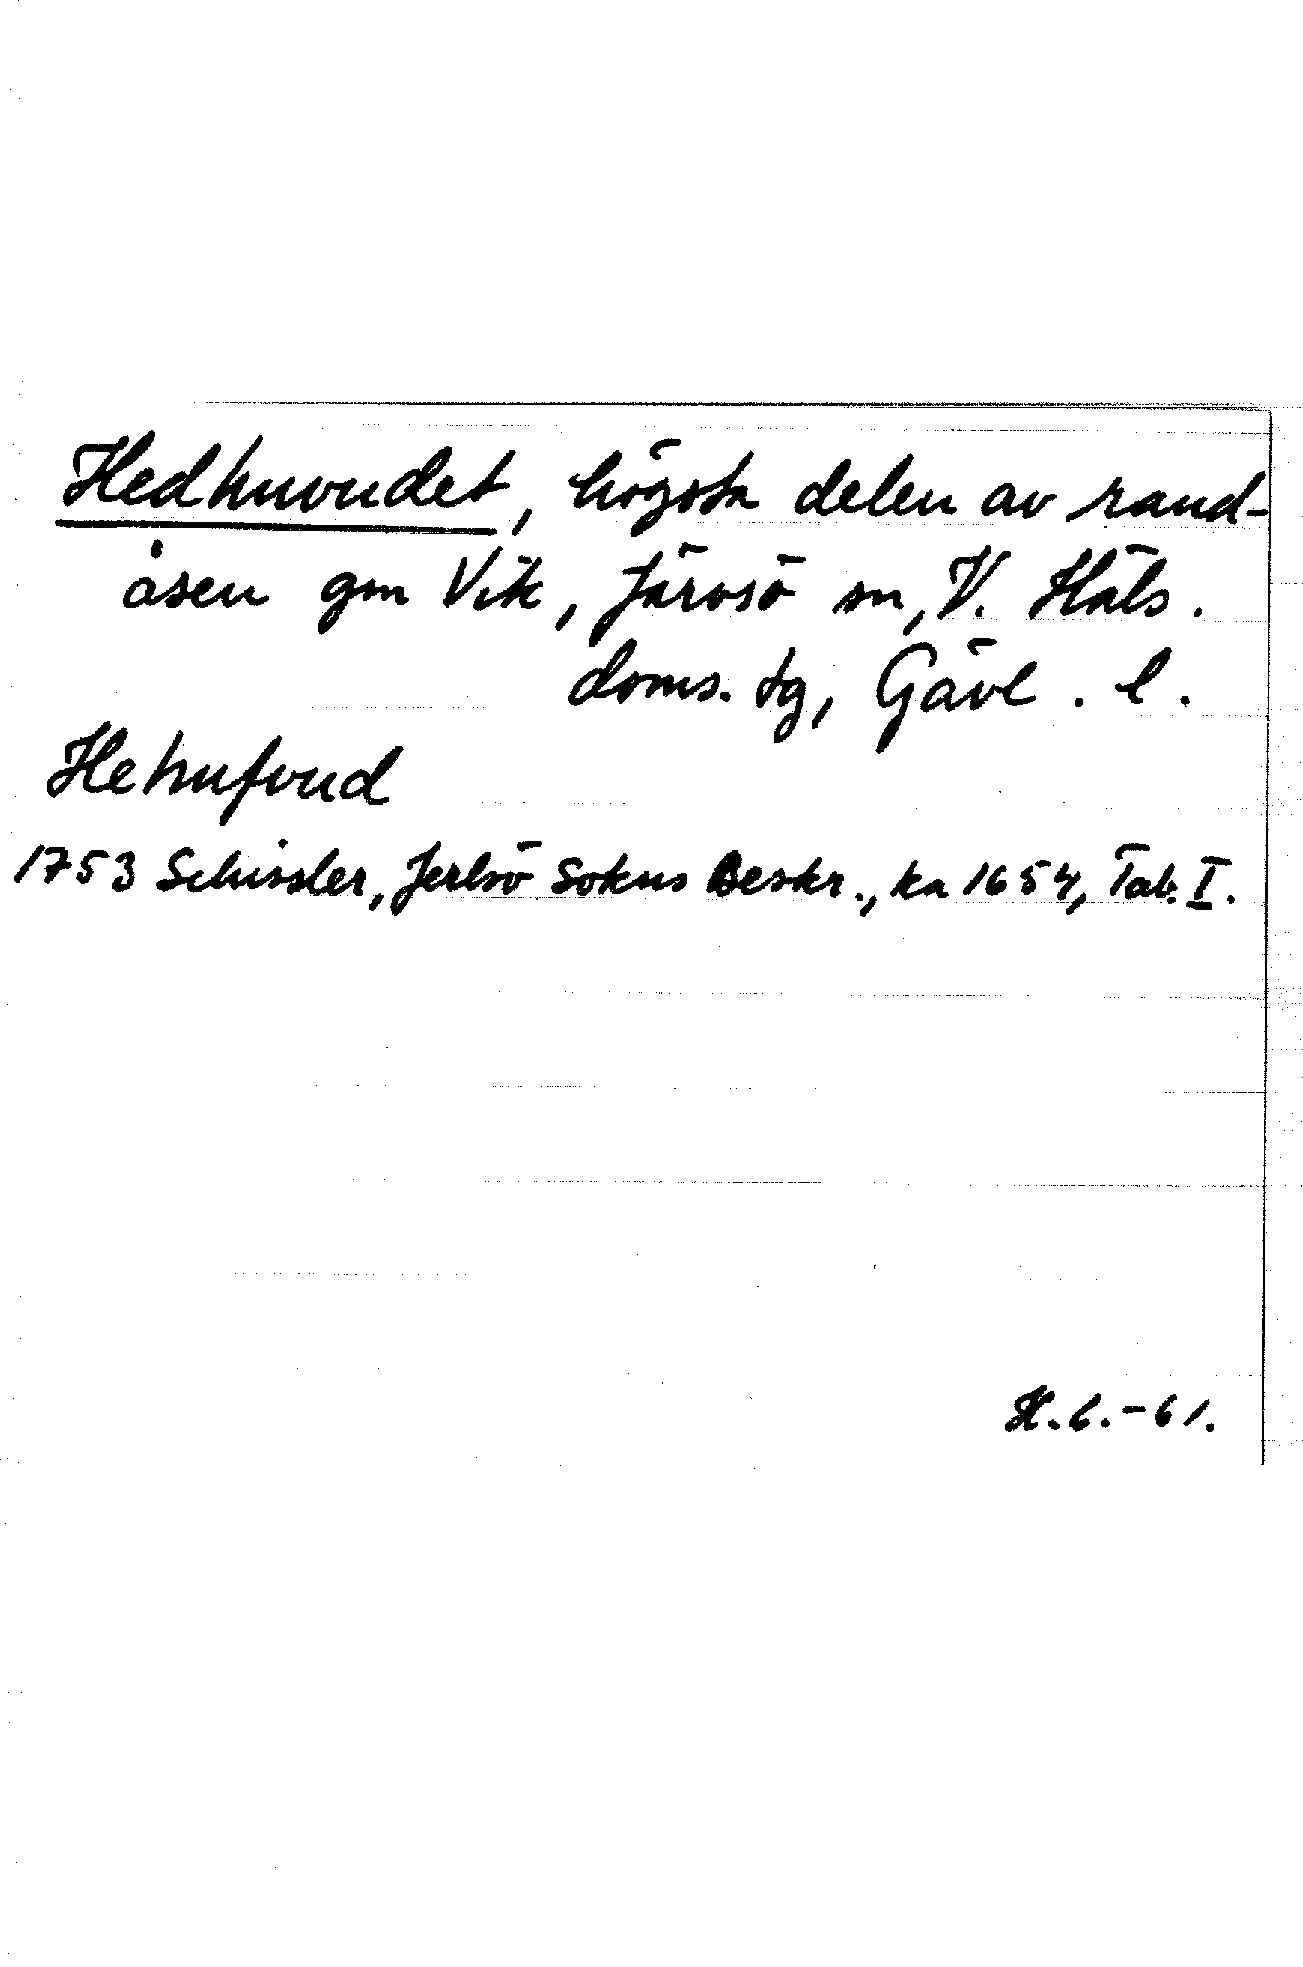 Hedhuvudet, högsta delen av rand-
åsen gm Vik, Järvsö sn, V. Häls.
doms. tg, Gävl. l.
Hehufvud
1753 Schissler, Jerlsö Sokns Beskr., ka 1654, Tab. I.
H.6.-61.